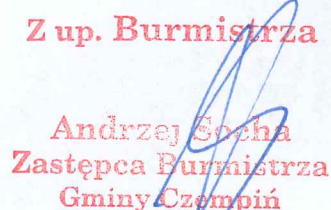 Z up. Burmistrza
Andrzej Socha
Zastępca Burmistrza
Gminy Czempiń